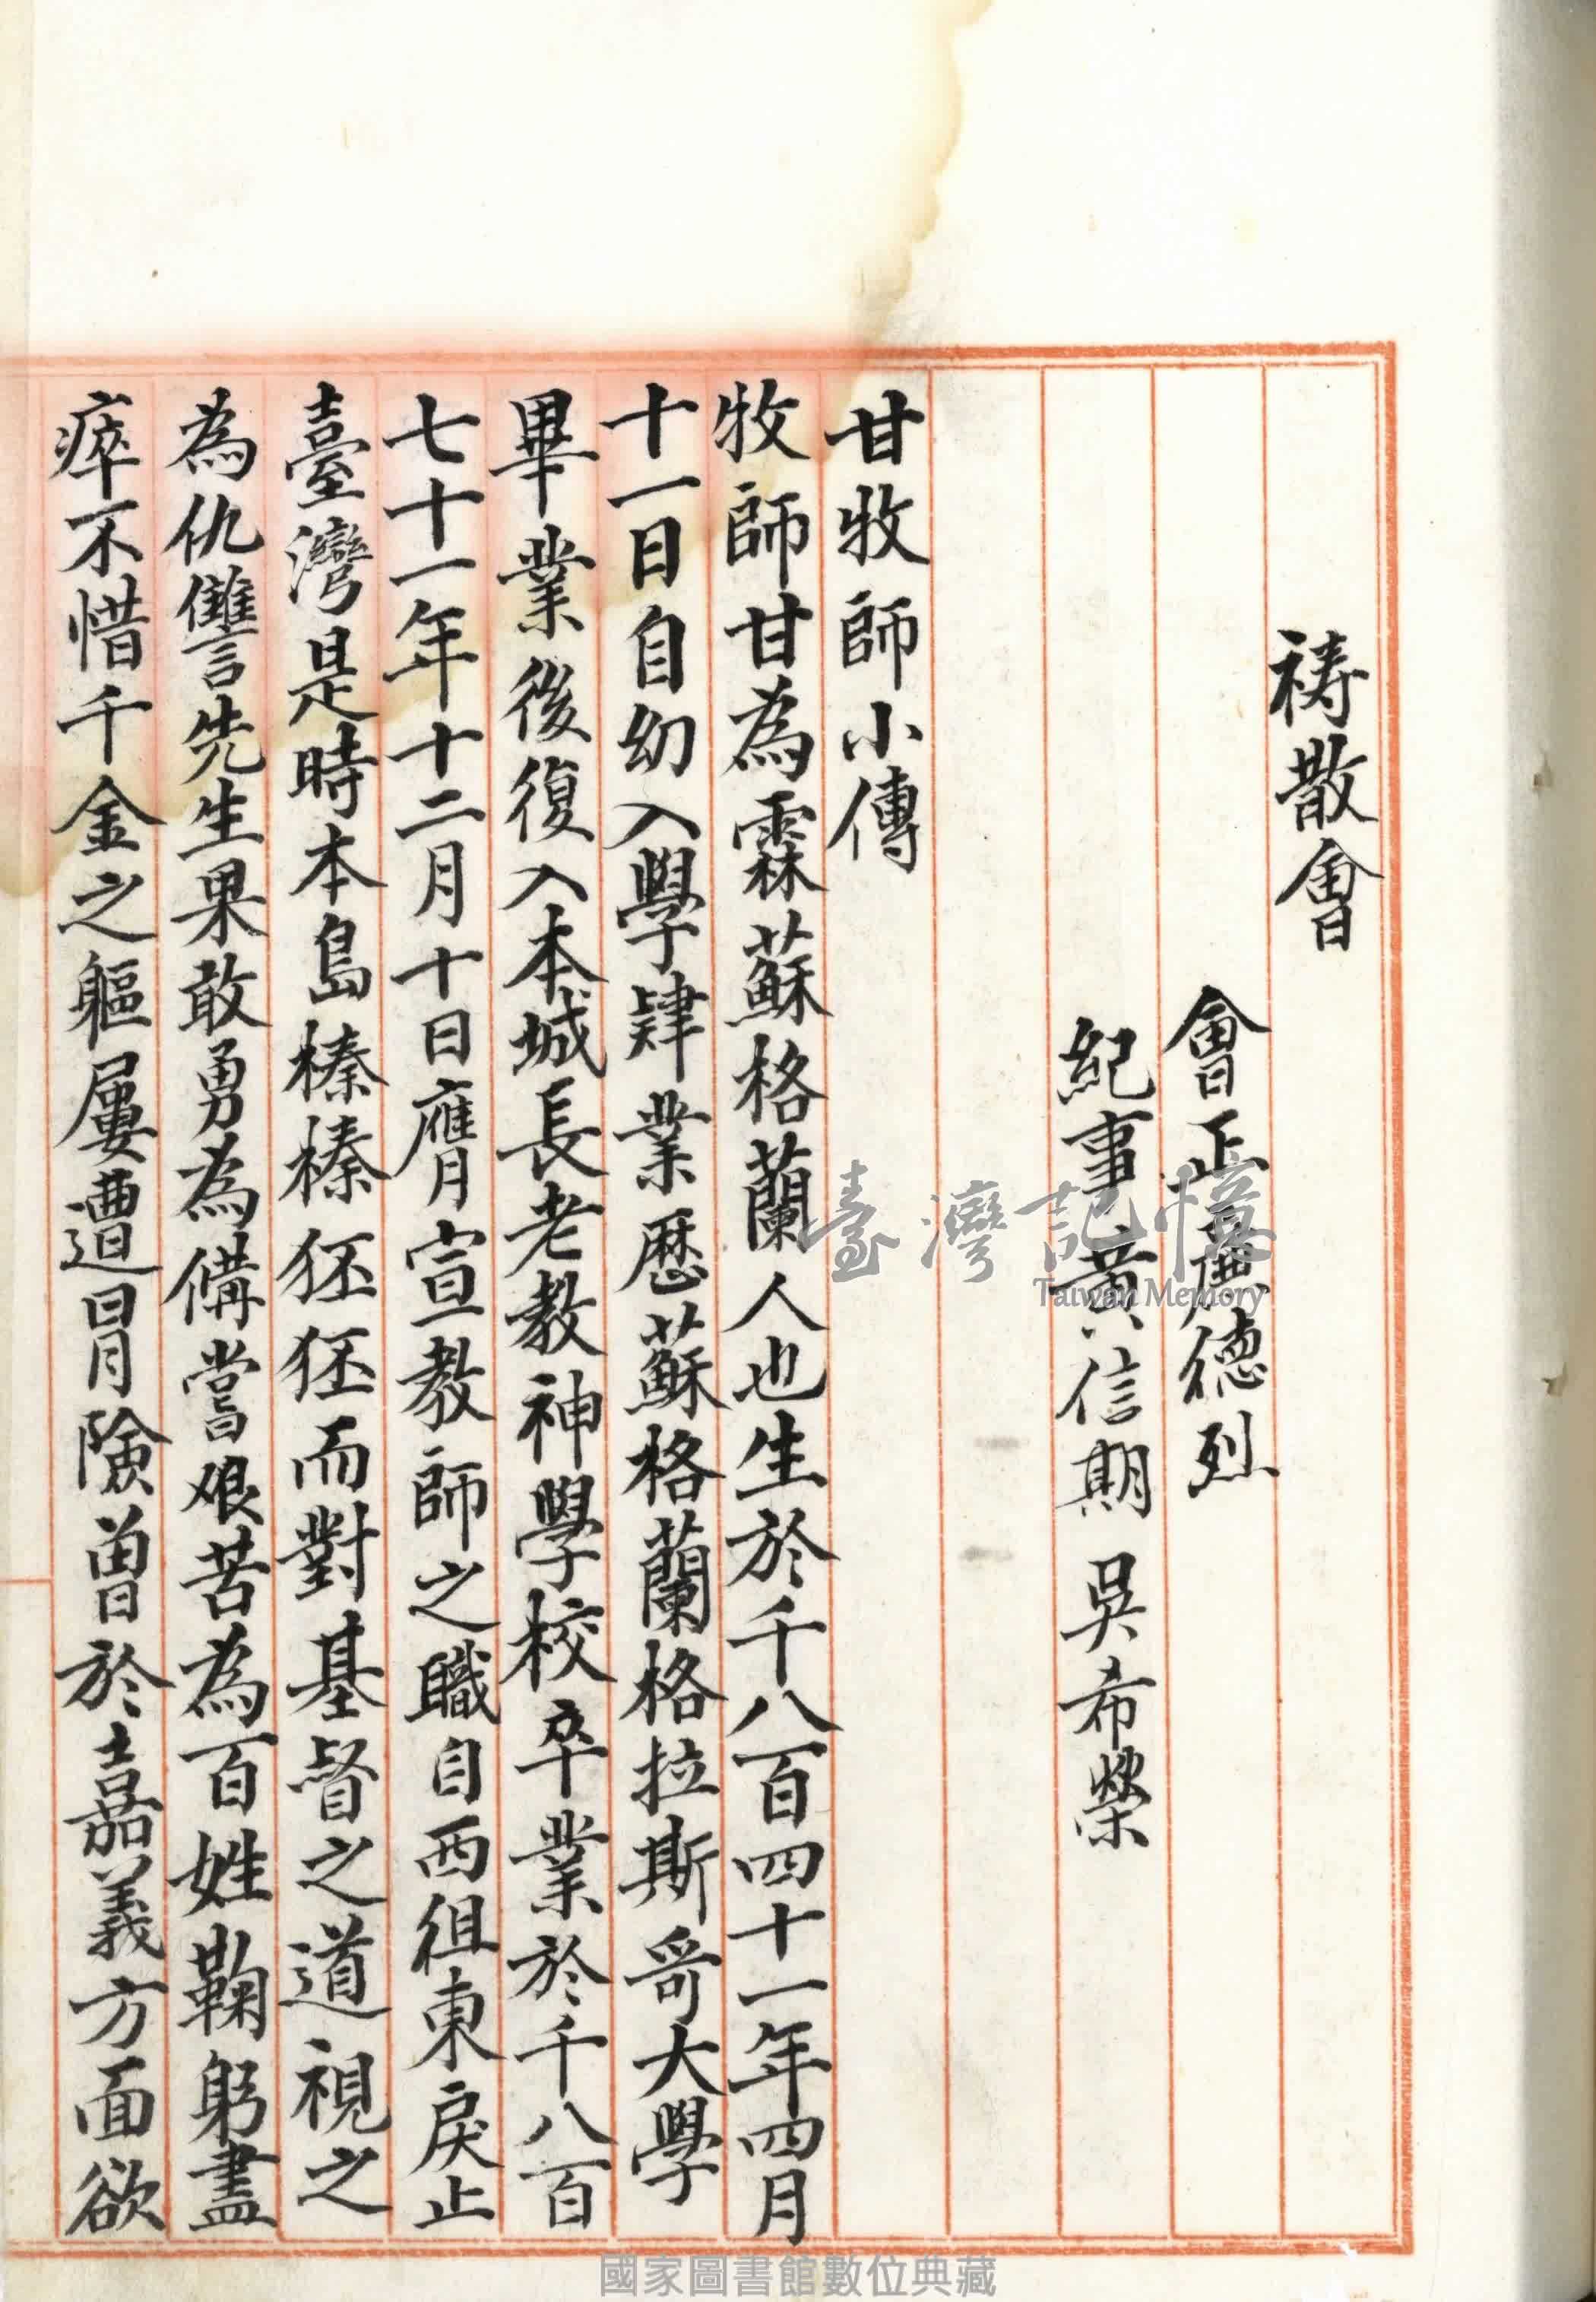 禱散會
會正廉德烈
紀事黃信期 吳希榮
甘牧師小傳
牧師甘為霖蘇格蘭人也生於千八百四十一年四月
十一日自幼入學肄業歷蘇格蘭格拉斯哥大學
畢業後復入本城長老教神學校卒業於千八百
七十一年十二月十日膺宣教師之職自西徂東戾止
臺灣是時本島榛榛狉狉而對基督之道視之
為仇讐先生果敢勇為備嘗艱苦為百姓鞠躬盡
瘁不惜千金之軀屢遭冒險曾於嘉義方面欲
臺灣記憶
Taiwan Memory
國家圖書館數位典藏